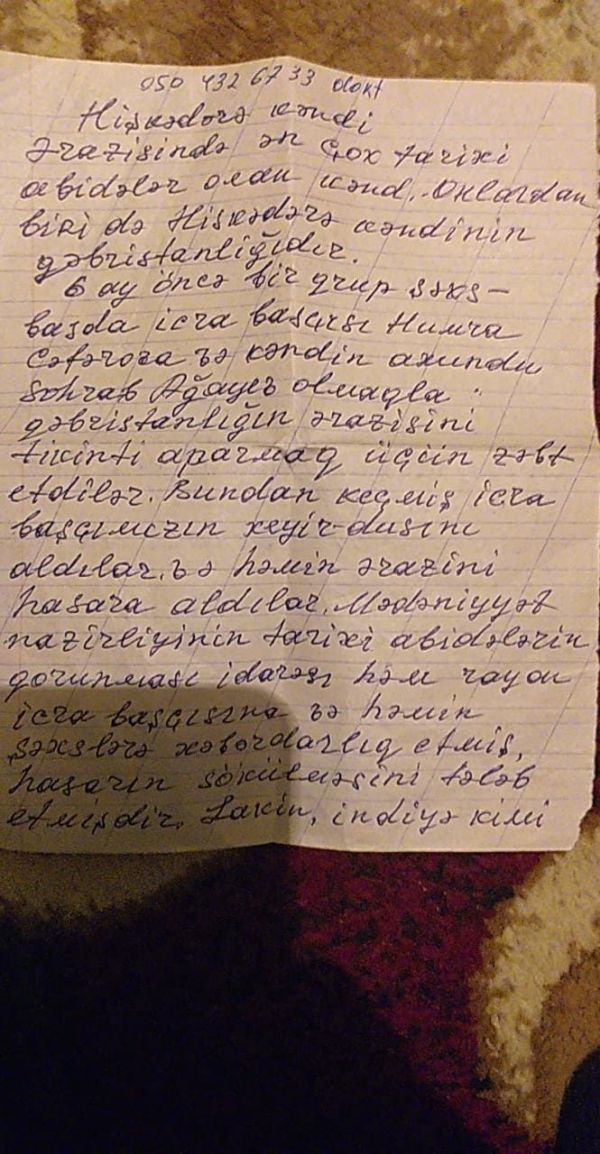 050 432 67 33
Hişkədərə kəndi
Ərazisində ən çox tarixi
abidələr olan kənd. Onlardan
biri də Hişkədərə kəndinin
qəbristanlığıdır.
6 ay öncə bir qrup şəxs-
başda icra başçısı Humra
Cəfərova və kəndin axundu
Sohrab Ağayev olmaqla
qəbristanlığın ərazisini
tikinti aparmaq üçün zəbt
etdilər. Bundan keçmiş icra
başçımızın xeyir-duasını
aldılar. və həmin ərazini
hasara aldılar. Mədəniyyət
nazirliyinin tarixi abidələrin
qorunması idarəsi həm rayon
icra başçısına və həmin
şəxslərə xəbərdarlıq etmiş,
hasarın sökülməsini tələb
etmişdir. Lakin, indiyə kimi